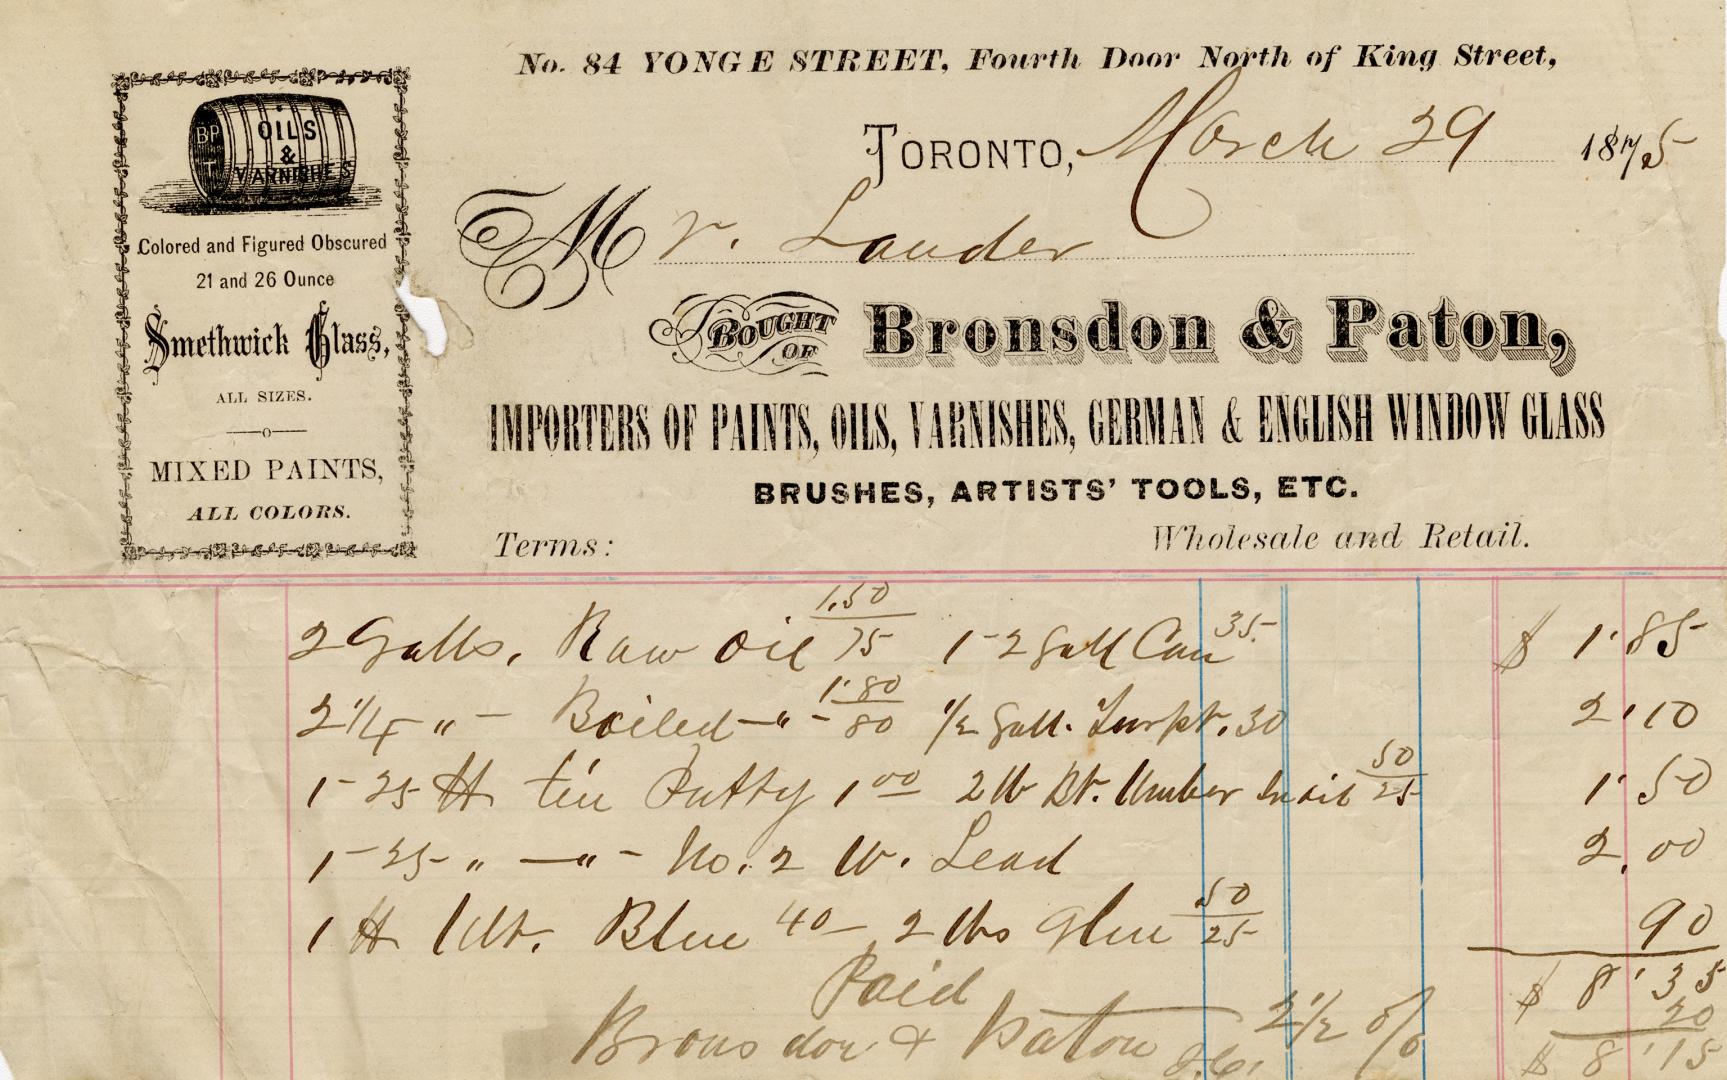 No. 84 YONGE STREET, Fourth Door North of King Street,
TORONTO, March 29 1875
Mr. Lauder
BOUGHT OF Bronsdon & Paton,
IMPORTERS OF PAINTS, OILS, VARNISHES, GERMAN & ENGLISH WINDOW GLASS
BRUSHES, ARTISTS' TOOLS, ETC.
Terms: Wholesale and Retail.
BP
T
OILS
&
VARNISHES
Colored and Figured Obscured
21 and 26 Ounce
Smethwick Glass,
ALL SIZES.
MIXED PAINTS,
ALL COLORS.
2 Galls. Raw Oil 1.50/75 1-2 Gall Can 35 $ 1.85
2 1/4 " - Boiled -"- 1.80/80 1/2 Gall. Turpt. 30 2.10
1-25 lb tin Putty 1 00 2 lb Bt. Umber in oil 50/25 1.50
1-25 " -"- No. 2 W. Lead 2.00
1 lb Ult. Blue 40 - 2 lbs Glue 50/25 90
$ 8.35
Paid 20
Bronsdon & Paton 2 1/2 % $ 8.15